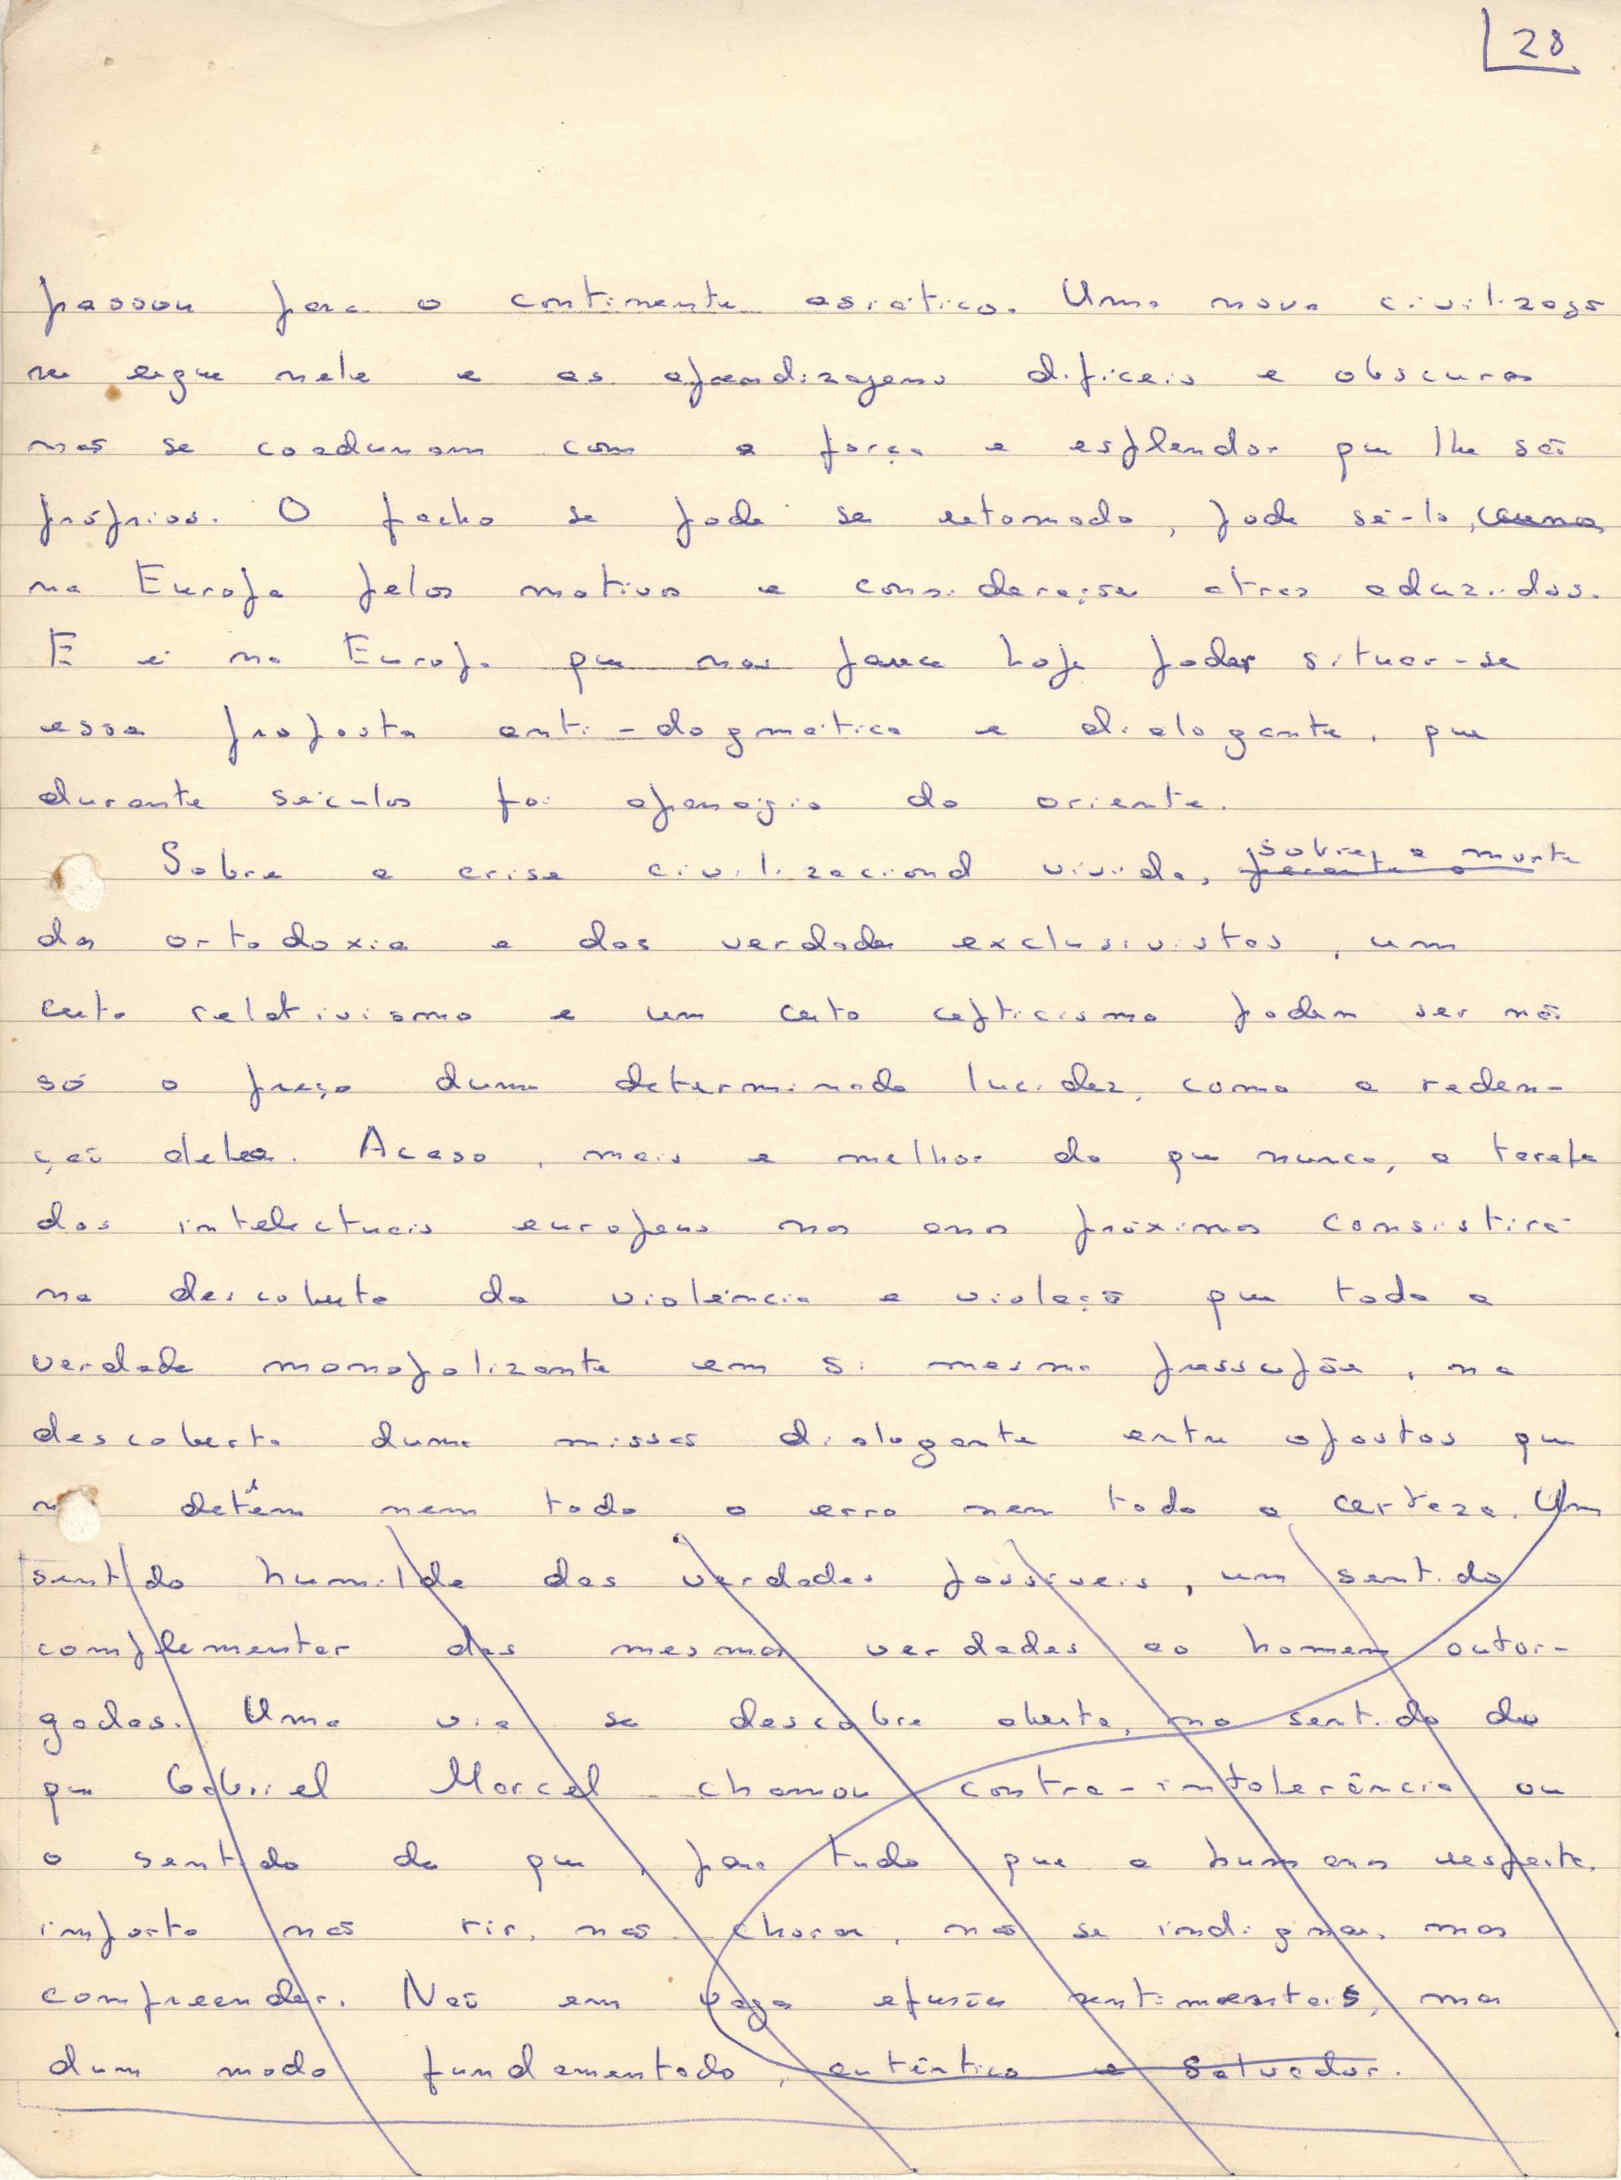 28
passou para o continente asiático. Uma nova civilização
se ergue nele e as aprendizagens difíceis e obscuras
não se coadunam com a força e esplendor que lhe são
próprios. O facho se pode ser retomado, pode sê-lo,
na Europa pelos motivos e considerações atrás aduzidos.
E é na Europa que nos parece hoje poder situar-se
essa proposta anti-dogmática e dialogante, que
durante séculos foi apanágio do oriente.
Sobre a crise civilizacional vivida, perante a sobre a morte
da ortodoxia e das verdades exclusivistas, um
certo relativismo e um certo cepticismo podem ser não
só o preço duma determinada lucidez, como a reden-
ção dela. Acaso, mais e melhor do que nunca, a tarefa
dos intelectuais europeus nos anos próximos consistirá
na descoberta da violência e violação que toda a
verdade monopolizante em si mesma pressupõe, na
descoberta duma missão dialogante entre opostos que
não detêm nem todo o erro nem toda a certeza. Um
sentido humilde das verdades possíveis, um sentido
complementar das mesmas verdades ao homem outor-
gadas. Uma via se descobre aberta, no sentido do
que Gabriel Marcel chamou contra-intolerância ou
o sentido de que, para tudo que a humanos respeite,
importa não rir, não chorar, não se indignar, mas
compreender. Não em vagas efusões sentimentais, mas
dum modo fundamentado, autêntico e salvador.